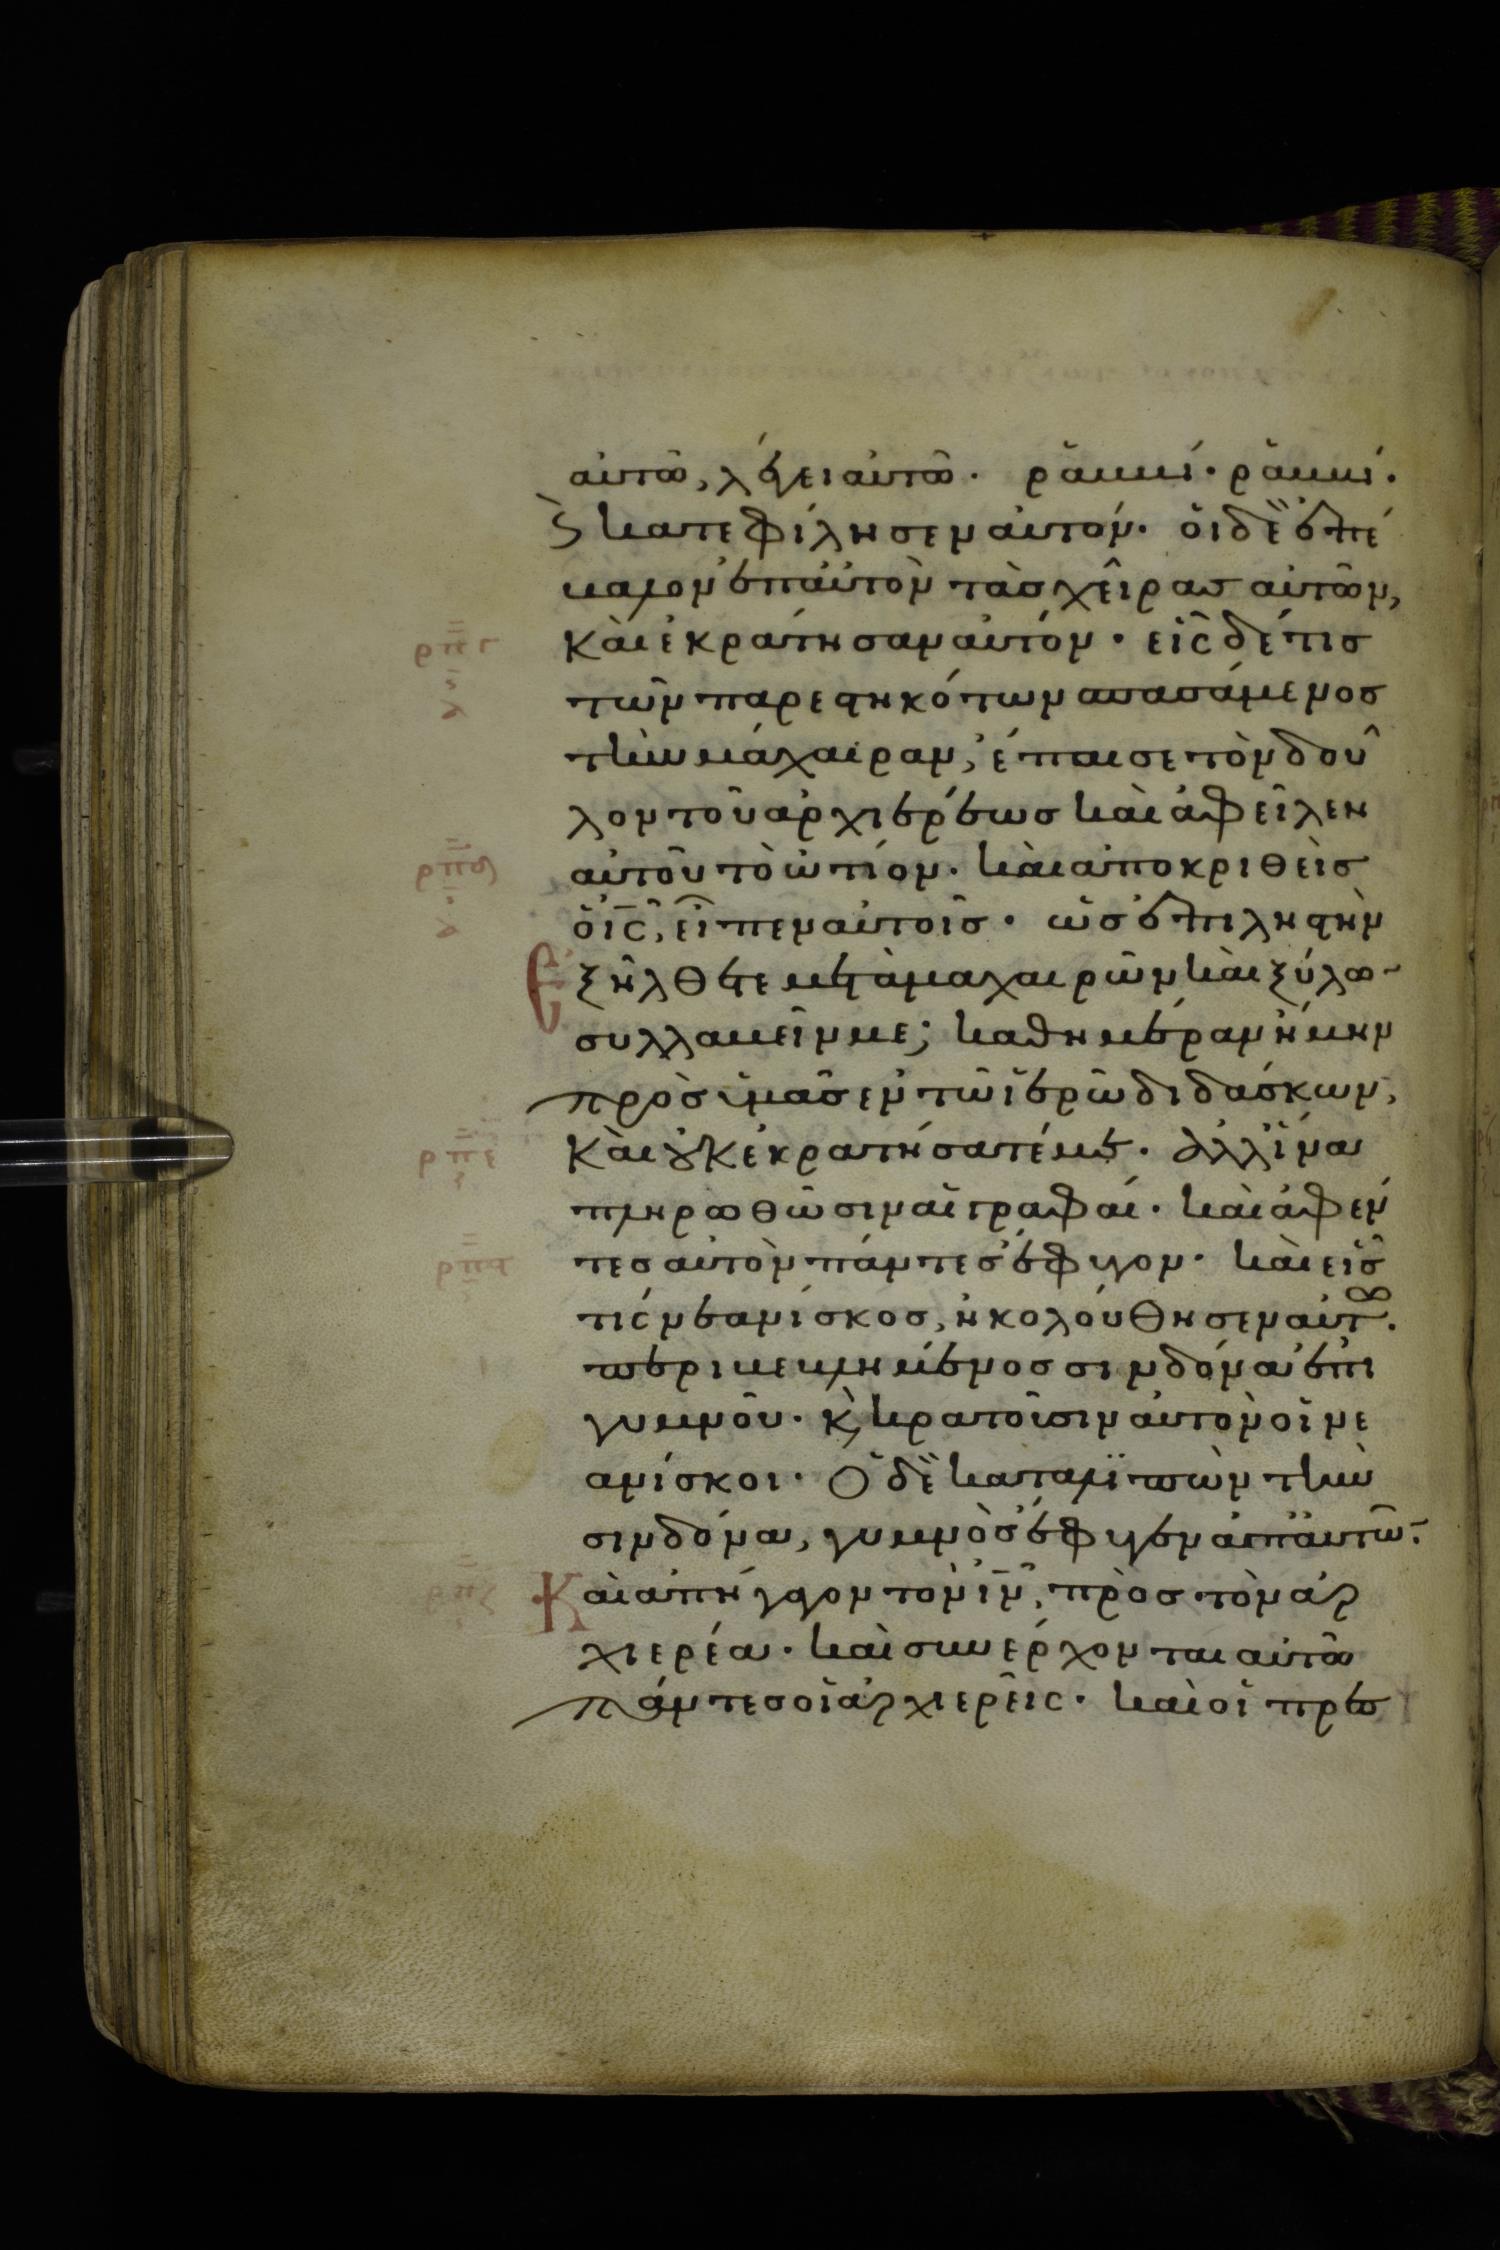 αὐτῶ, λέγει αὐτῶ· ῥαββί· ῥαββί·
ϗ κατεφίλησεν αὐτόν· οἱ δὲ ἐπέ
βαλον ἐπ αὐτὸν τὰς χεῖρας αὐτῶν,
καὶ ἐκράτησαν αὐτόν· εἷς δέ τις
τῶν παρεστηκότων σπασάμενος
τὴν μάχαιραν, ἔπαισε τὸν δοῦ
λον τοῦ ἀρχιερέως καὶ ἀφεῖλεν
αὐτοῦ τὸ ὠτίον· καὶ ἀποκριθεὶς
ὁ ις, εἶπεν αὐτοῖς· ὡς ἐπὶ ληστὴν
ἐξήλθετε μετὰ μαχαιρῶν καὶ ξύλω
συλλαβεῖν με; καθημέραν ἤμην
πρὸς ὑμᾶς ἐν τῶ ἱερῶ διδάσκων,
καὶ οὐκ ἐκρατήσατέ με· ἀλλ ἵνα
πληρωθῶσιν αἱ γραφαί· καὶ ἀφέν
τες αὐτὸν πάντες ἔφυγον· καὶ εἷς
τίς νεανίσκος, ἠκολούθησεν αὐτω·
περιβεβλημένος σινδόνα ἐπὶ
γυμνοῦ· ϗ κρατοῦσιν αὐτὸν οἱ νε
ανίσκοι· Ὁ δὲ καταλιπὼν τὴν
σινδόνα, γυμνὸς ἔφυγεν ἀπ αὐτῶ·
Καὶ ἀπήγαγον τὸν ιν, πρὸς τὸν ἀρ
χιερέα· καὶ συνέρχονται αὐτῶ
πάντες οἱ ἀρχιερεῖς· καὶ οἱ πρε